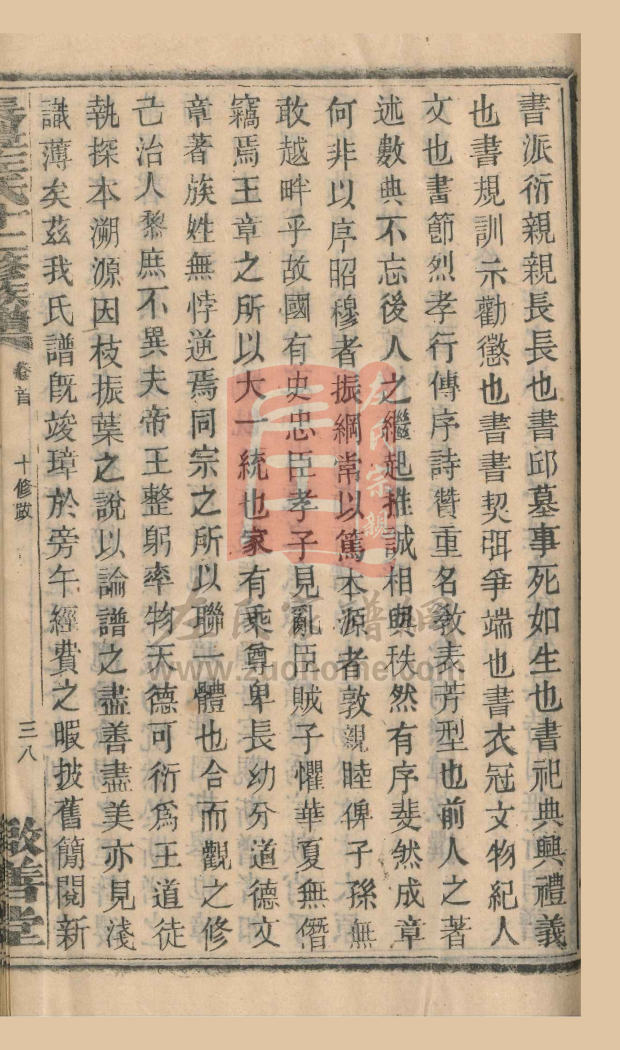 書派衍親親長長也書邱墓事死如生也書祀典興禮義
也書規訓示勸懲也書書契弭爭端也書衣冠文物紀人
文也書節烈孝行傳序詩贊重名教表芳型也前人之著
述數典不忘後人之繼起推誠相與秩然有序斐然成章
何非以序昭穆者振綱常以篤本源者敦親睦俾子孫無
敢越畔乎故國有史忠臣孝子見亂臣賊子懼華夏無僭
竊焉王章之所以大一統也家有乘尊卑長幼分道德文
章著族姓無悖逆焉同宗之所以聯一體也合而觀之修
己治人黎庶不異夫帝王整躬率物天德可衍為王道徒
執探本溯源因枝振葉之說以論譜之盡善盡美亦見淺
識薄矣茲我氏譜既竣璋於旁午經費之暇披舊簡閱新
左氏十一修族譜
卷首
十修跋
三八
敬善堂
左氏宗親
左氏家譜網
www.zuohome.com